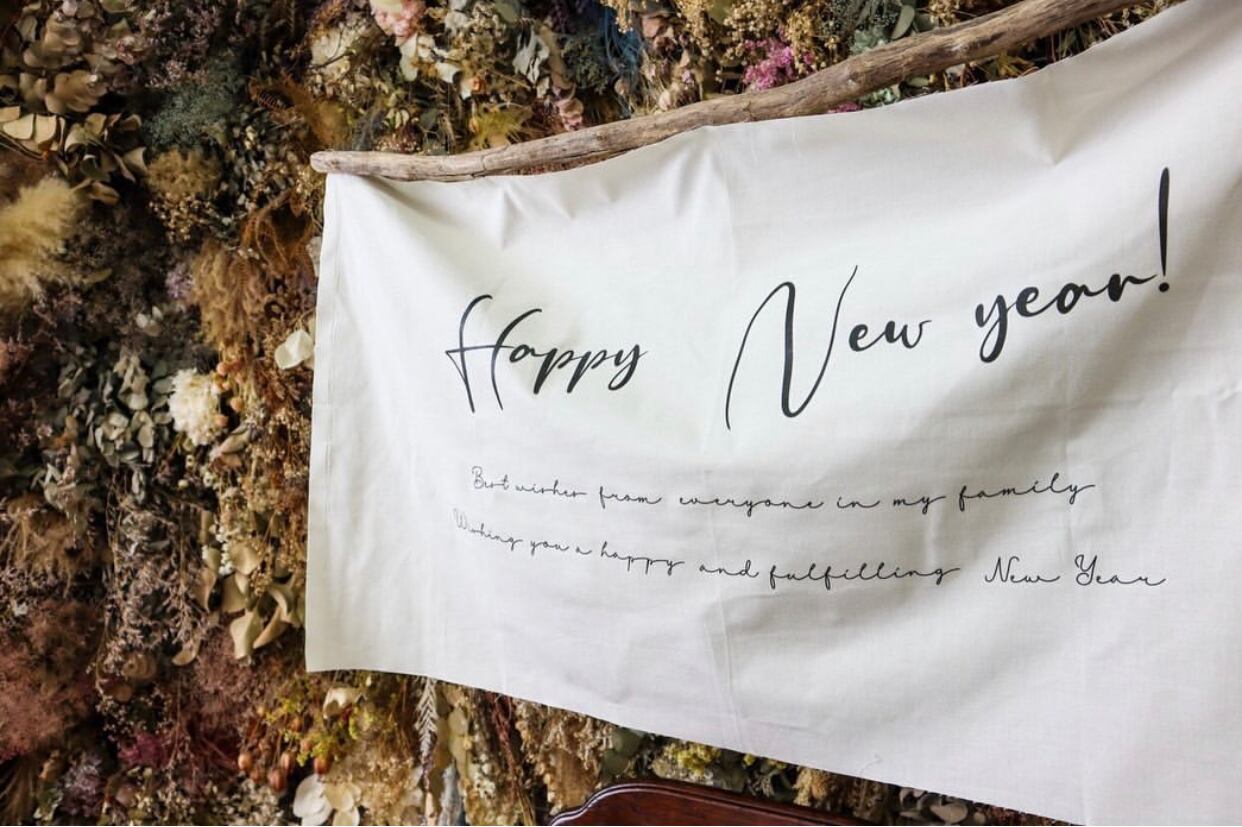 Happy New year!
Best wishes from everyone in my family
Wishing you a happy and fulfilling New Year